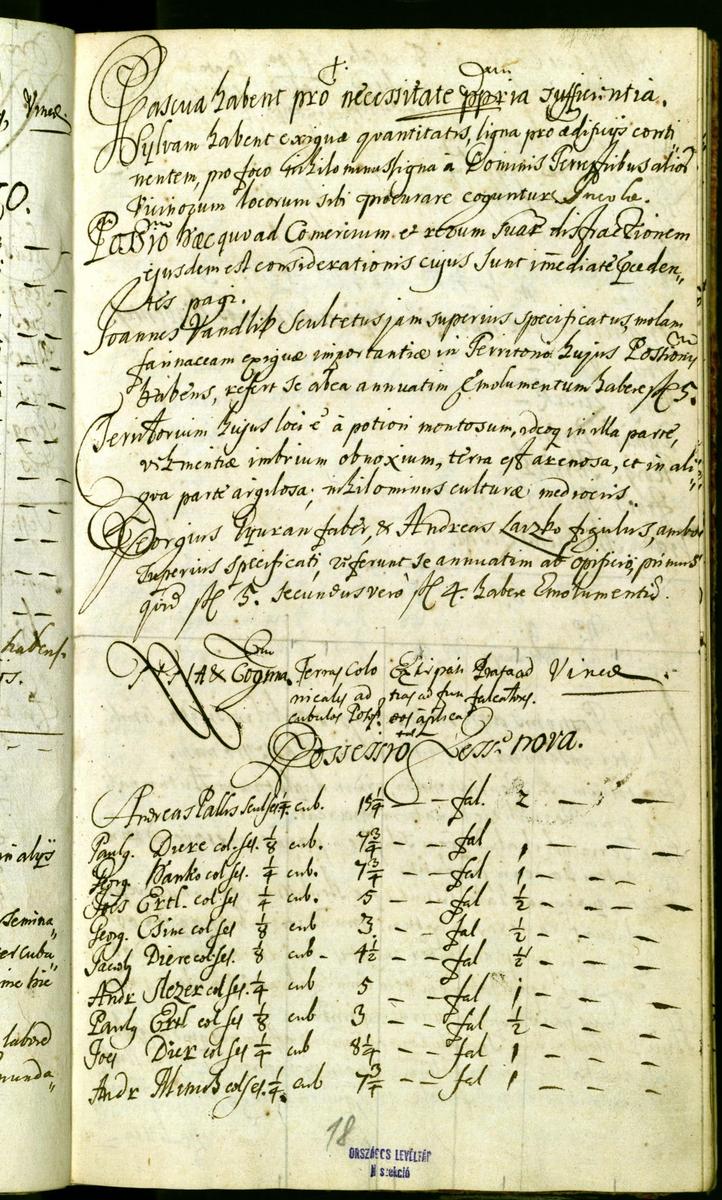 Vineæ
Pascua habent pro necessitate ppria sufficientia.
Sylvam habent exiguæ quantitatis, ligna pro ædificijs conti
nentem, pro foco nihilominus ligna à Dominis Terrestribus alior
Vicinorum locorum sibi procurare coguntur Incolæ.
Possio hæc quoad Comercium et rerum suar distractionem
ejusdem est considerationis cujus sunt im̄ediate præceden„
tes pagi.
Joannes Vandlik Scultetus jam superius specificatus, molam
farinaceam exiguæ importantiæ in Territorio hujus Possionis
habens, refert se ab ea annuatim Emolumentum habere fl 5.
Territorium hujus loci è à potiori montosum, ideoq in illa parte,
vehementiæ imbrium obnoxium, terra est arenosa, et in ali„
qua parte argilosa, nihilominus culturæ mediocris.
Georgius Tyuran faber, & Andreas Laczko figulus, ambo
superius specificati, referunt se annuatim ab opificio, primus
quid fl 5. secundus vero fl 4. habere Emolumentū.
NNA & Cognna Terras Colo Exirpa Prata ad Vineæ
nicales ad tias ad fun falcatores.
cubulos Poson. dos applica
Possessio Less nova.
Andreas Pallis scultet 1/4 cub. 15 1/4 — — fal. 2 — —
Paulg. Diere col. ses. 1/8 cub. 7 3/4 — — fal 1 — — —
Georg. Hanko col ses. 1/4 cub. 7 3/4 — — fal 1 — — —
Joes Ertl. col ses 1/4 cub. 5 — — fal 1/2 — — —
Georg. Csine col ses 1/8 cub 3. — — fal 1/2 — — —
Jacob Diere col. ses. 1/8 cub - 4 1/2 — — fal 1/2 — — —
Andr Slezer col ses. 1/4 cub 5 — — fal 1 — — —
Paulg Ertl col ses 1/8 cub 3 — — fal 1/2 — — —
Joes Dier col ses 1/4 cub 8 1/4 — — fal 1 — — —
Andr col ses. 1/4 cub 7 3/4 — — fal 1 — — —
18
ORSZÁGOS LEVÉLTÁR
N szekció